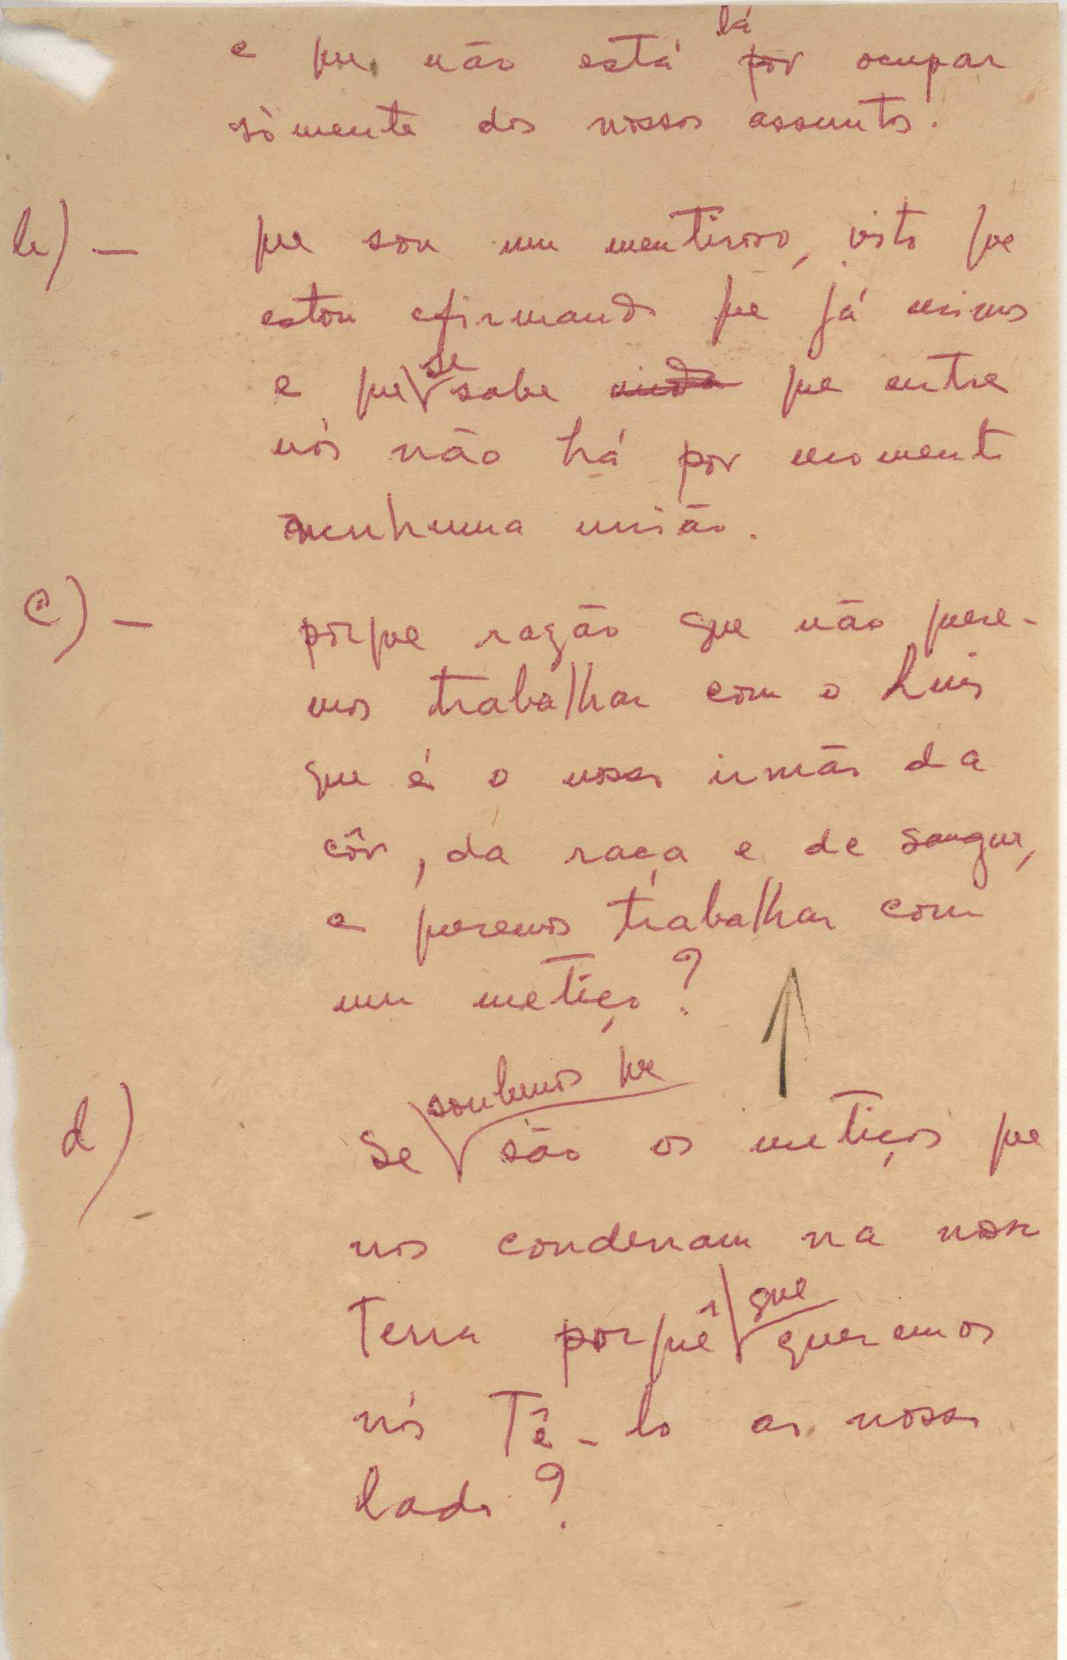 lá
e que não está por ocupar
sòmente dos nossos assuntos.
b) — que sou um mentiroso, visto que
estou afirmando que já unimos
se
e que sabe ainda que entre
nós não há por momento
nenhuma união.
c) — porque razão que não quere-
mos trabalhar com o Luis
que é o nosso irmão da
côr, da raça e de sangue,
e queremos trabalhar com
um metiço?
soubemos que
d) Se são os metiços que
nos condenam na nossa
Terra porquê que queremos
nós Tê-lo ao nosso
lado?